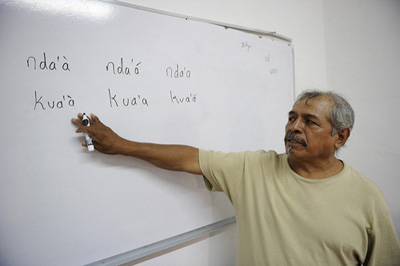 nda'à nda'ó nda'a
kua'à kua'a kua'á